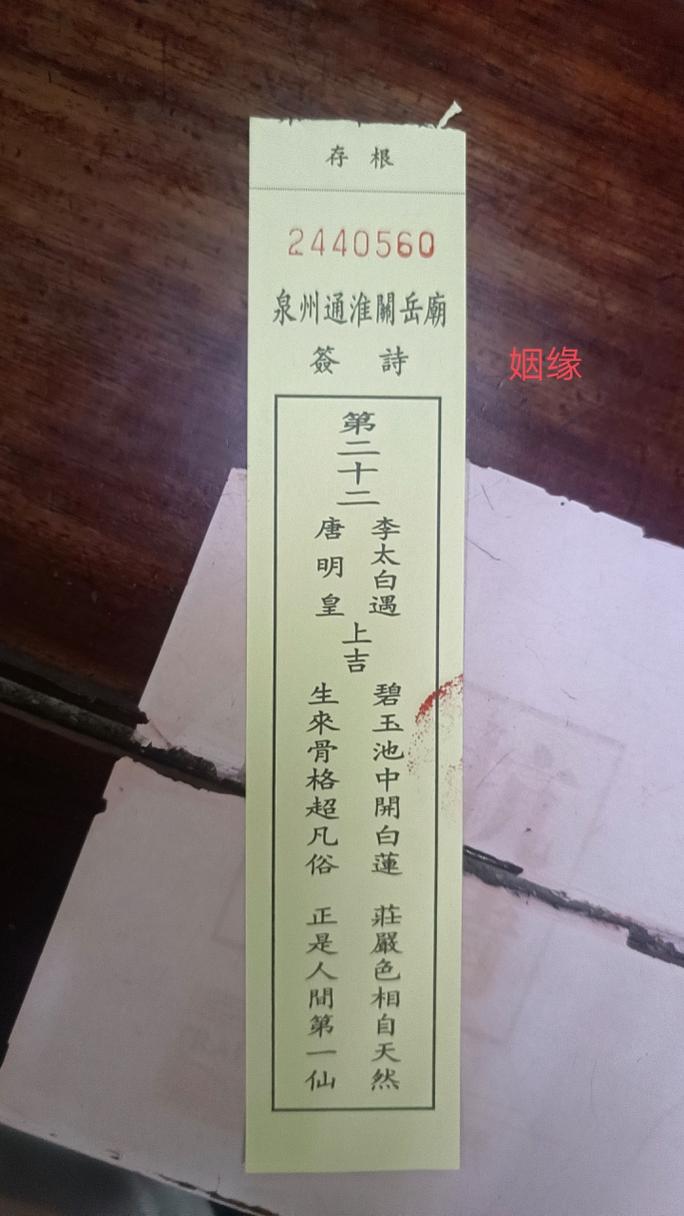 存根
2440560
泉州通淮關岳廟
簽詩
姻缘
第二十二
李太白遇
唐明皇
上吉
碧玉池中開白蓮
莊嚴色相自天然
生來骨格超凡俗
正是人間第一仙